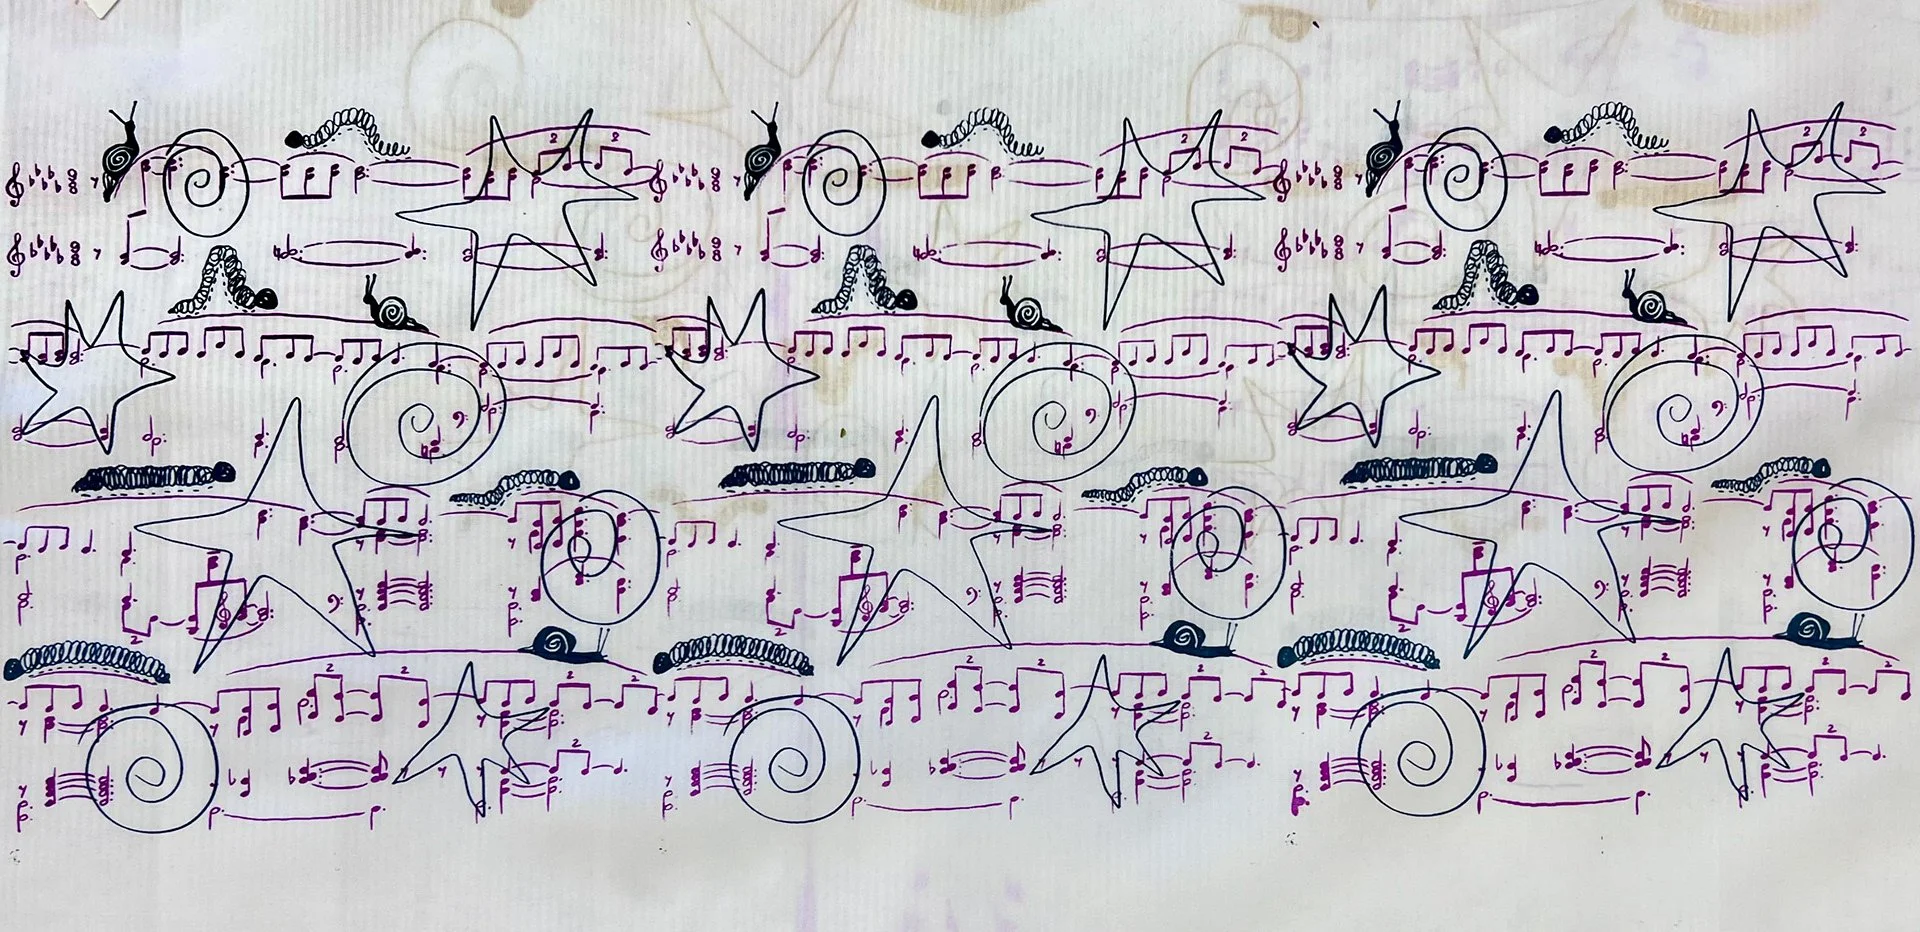 2 2 2 2 2 2
9 9 9
8 8 8
9 9 9
8 8 8
2 2 2
2 2 2 2 2 2 2 2 2 2 2 2
2 2 2